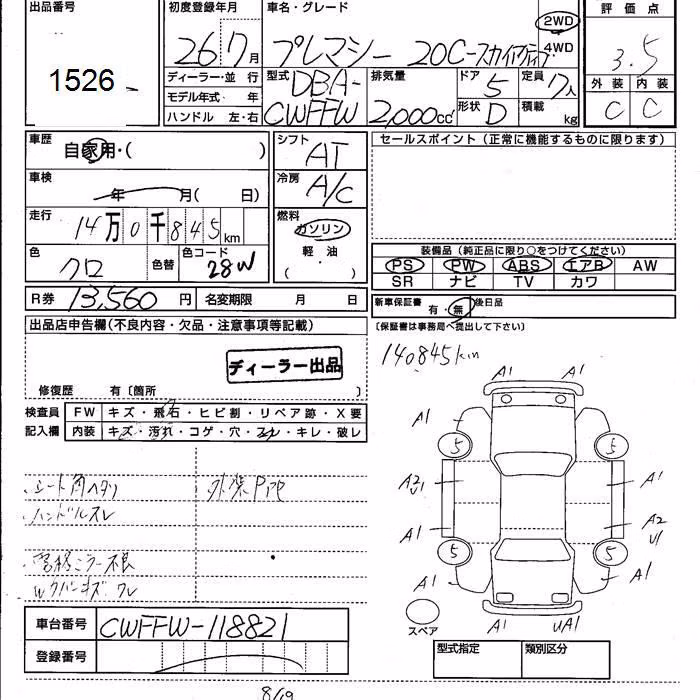 出品番号
1526
初度登録年月
26 7月
車名・グレード
プレマシー 20C-スカイアクティブ
2WD
4WD
評価点
3.5
外装 内装
C C
ディーラー・並行
モデル年式・年
ハンドル 左・右
型式
DBA-
CWFFW
排気量
2,000cc
ドア
5
定員
7人
形状
D
積載
kg
車歴
自家用・( )
シフト
AT
車検
年 月( 日)
冷房
A/C
走行
14万0千845km
燃料
ガソリン
軽・油
( ・ )
色
クロ
色替
色コード
28W
R券 13,560円
名変期限 月 日
セールスポイント(正常に機能するものに限ります)
装備品(純正品に限り○をつけてください)
PS PW ABS エアB AW
SR ナビ TV カワ
新車保証書
有・無
後日品
〔保証書は事務局へ提出して下さい〕
出品店申告欄(不良内容・欠品・注意事項等記載)
ディーラー出品
修復歴 有〔箇所 〕
検査員
記入欄
FW キズ・飛石・ヒビ割・リペア跡・X要
内装 キズ・汚れ・コゲ・穴・スレ・キレ・破レ
シート角ヘタリ
ハンドルスレ
外装
電格ミラー不良
140845km
A1 A1
A1
5 5
A2
U1
A1
A1
A2
U1
5 5
A1 A1
スペア
A1 UA1
車台番号 CWFFW-118821
登録番号
型式指定 類別区分
8/19